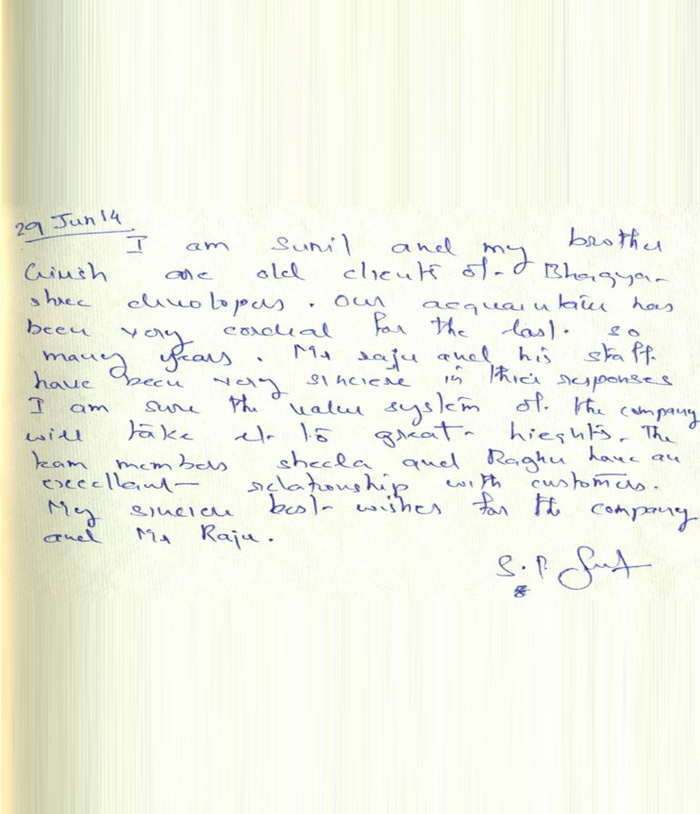 29 Jun 14
I am Sunil and my brother
Girish are old clients of Bhagya-
shree developers. Our acquaintance has
been very cordial for the last so
many years. Mr raju and his staff
have been very sincere in their responses
I am sure the value system of the company
will take it to great hieghts. The
team members sheela and Raghu have an
excellant relationship with customers.
My sincere best wishes for the company
and Mr Raju.
S.P.